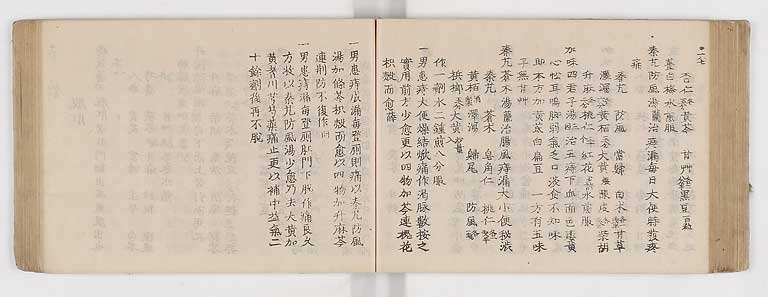 杏仁 黃芩 甘艸 黑豆
薑白梅水煎服
秦艽防風湯 治痔漏每日大便時發疼
痛
秦艽 防風 當歸 白朮 甘草
澤瀉 黃栢 大黃 陳皮 柴胡
升麻 桃仁 紅花 水煎服
加味四君子湯 治五痔下血面色痿黃
心忪耳鳴脚弱氣乏口淡食不知味
即本方加黃芪白扁豆 一方有五味
子無甘艸
秦艽蒼朮湯 治腸風痔漏大小便秘澁
秦艽 蒼朮 皂角仁 桃仁
黃栢 澤瀉 歸尾 防風
檳榔 大黃
作一劑水二鍾煎八分服
一男患痔大便燥結焮痛作渴脉數按之
實用前方少愈更以四物加芩連槐花
枳殼而愈薛
一男患痔成漏每登厠則痛以秦艽防風
湯加條芩枳殼而愈以四物加升麻芩
連荆防不復作
一男患痔漏每登厠肛門下脫作痛良久
方收以秦艽防風湯少愈乃去大黃加
黃芪川芎芍藥痛止更以補中益氣二
十餘劑後再不脫